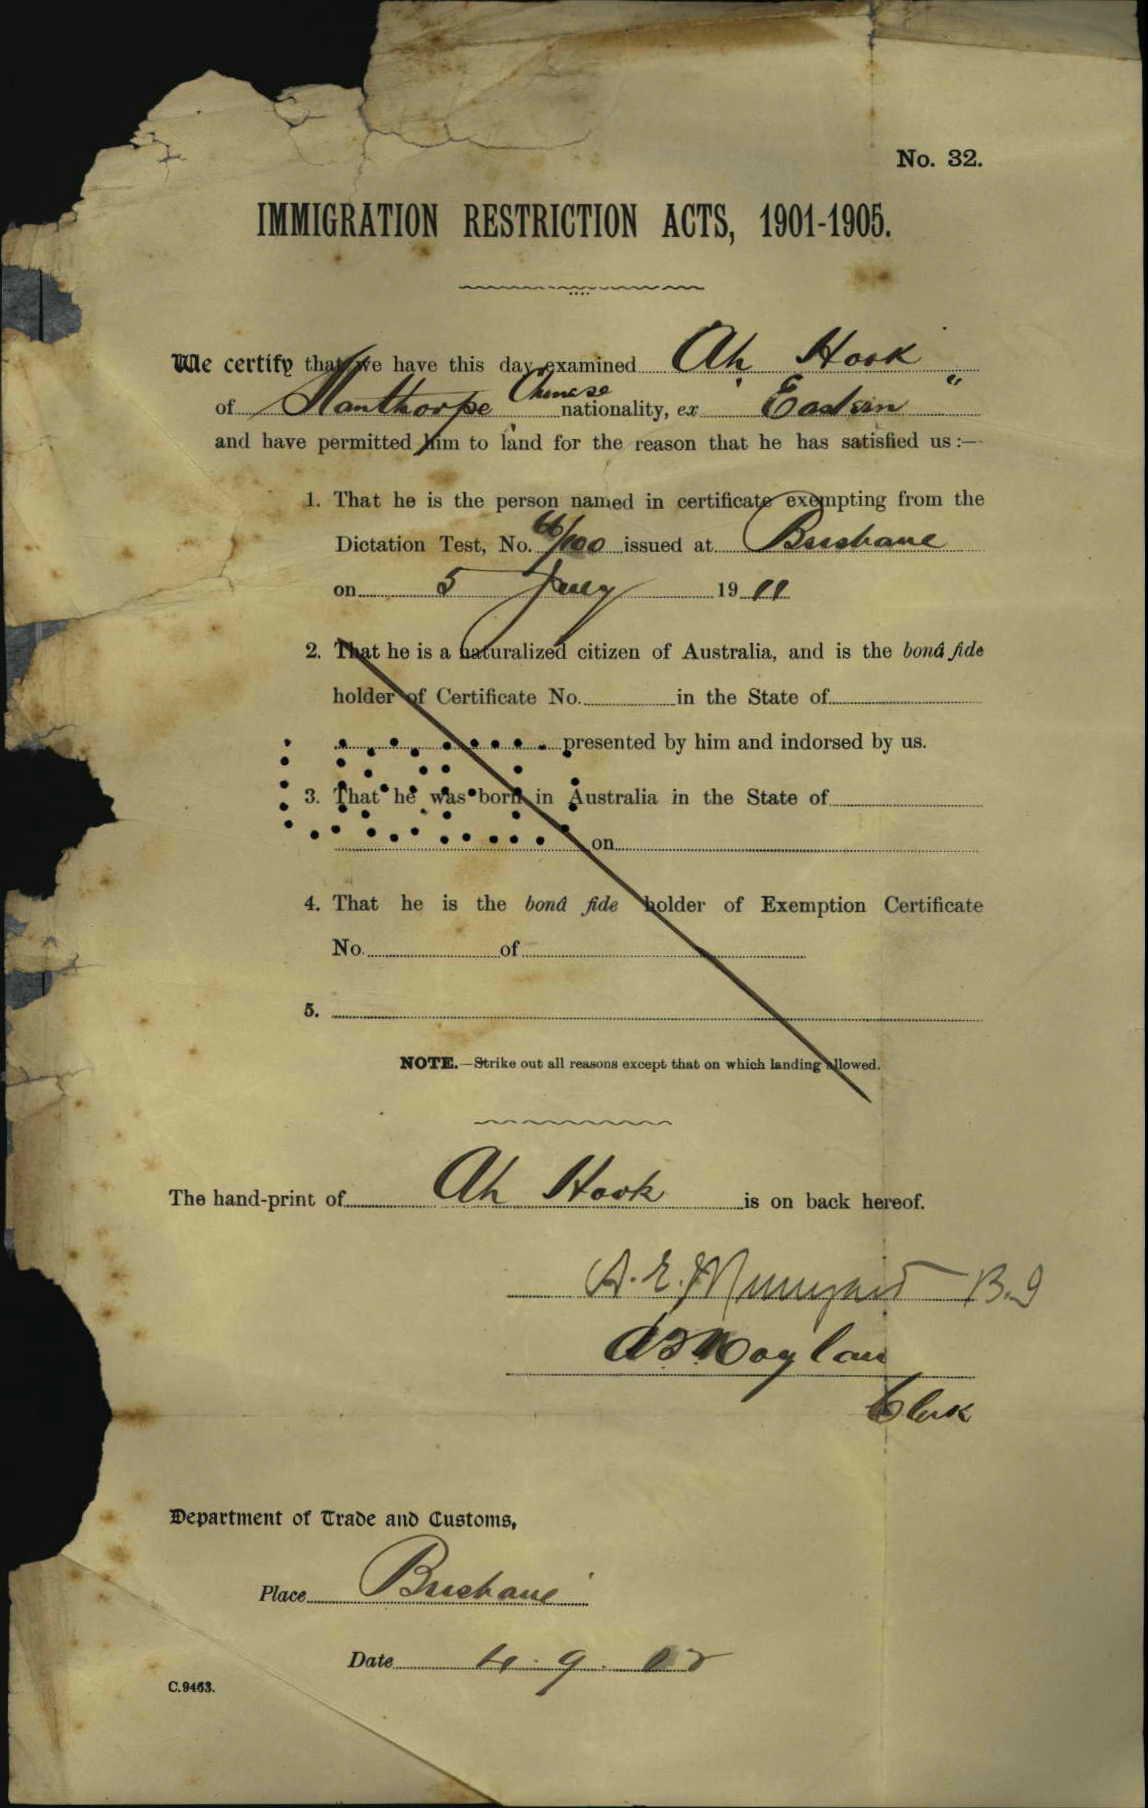 No. 32.
IMMIGRATION RESTRICTION ACTS, 1901-1905.
We certify that we have this day examined Ah Hook
of Stanthorpe Chinese nationality, ex "Eastern"
and have permitted him to land for the reason that he has satisfied us :—
1. That he is the person named in certificate exempting from the
Dictation Test, No. 66/100 issued at Brisbane
on 5 July 1911
2. That he is a naturalized citizen of Australia, and is the bonâ fide
holder of Certificate No. in the State of
presented by him and indorsed by us.
3. That he was born in Australia in the State of
on
4. That he is the bonâ fide holder of Exemption Certificate
No. of
5.
NOTE.—Strike out all reasons except that on which landing allowed.
The hand-print of Ah Hook is on back hereof.
A. E.
Moylan
Clerk
Department of Trade and Customs,
Place Brisbane
Date 4.9.12
C.9463.